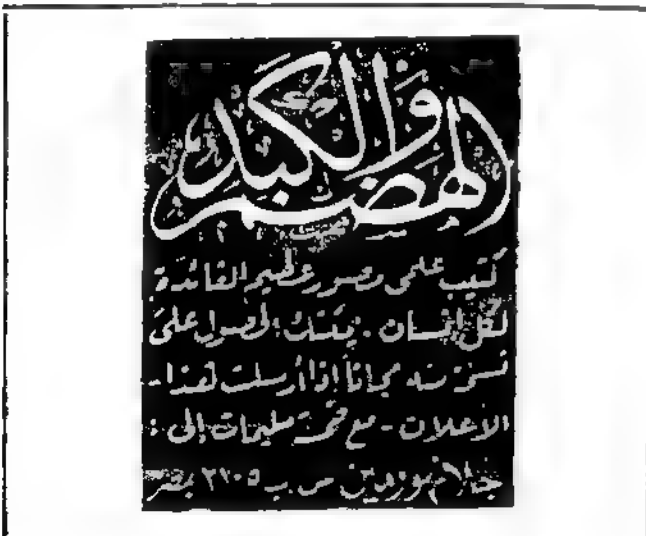 الهضم والكبد
كتيب علمى مصور عظيم الفائدة
لكل إنسان - يمكنك الحصول على
نسخة منه مجاناً إذا أرسلت هذا -
الاعلان - مع خمسة مليمات إلى :
ص. ب ٢١٠٥ بمصر